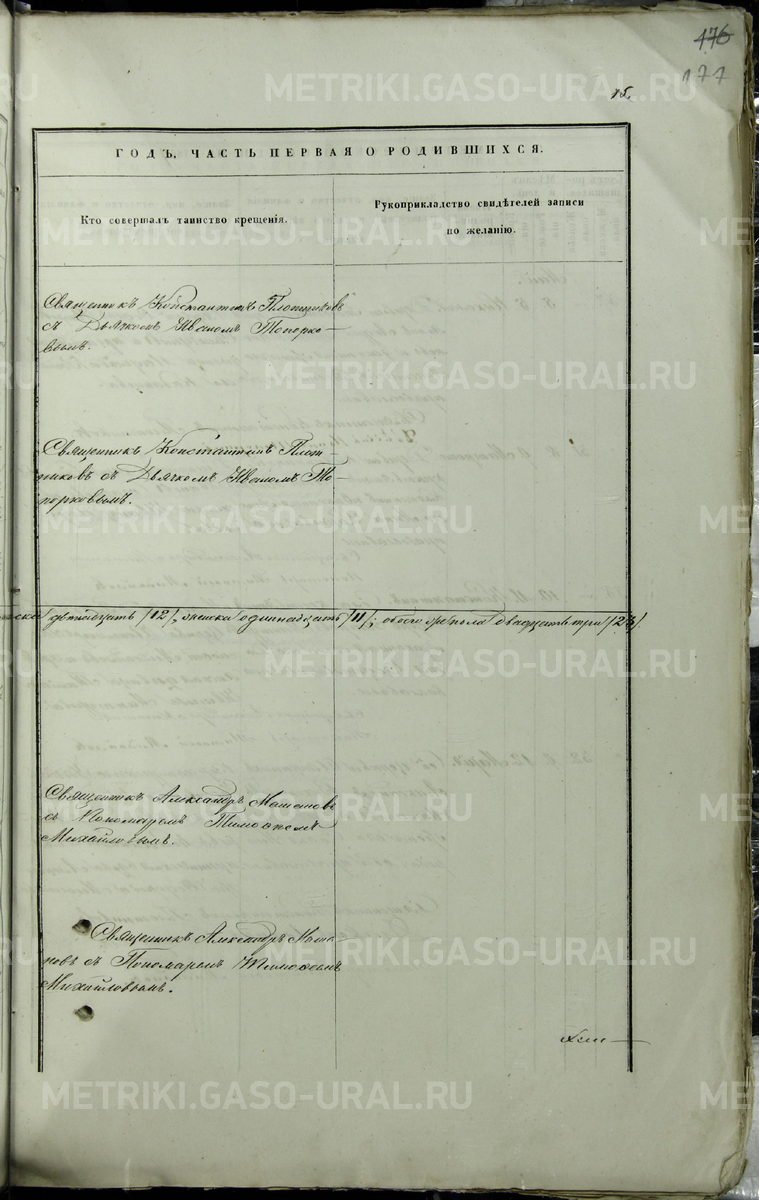 176
177
15.
ГОДЪ, ЧАСТЬ ПЕРВАЯ О РОДИВШИХСЯ.
Кто совершалъ таинство крещенія.
Рукоприкладство свидѣтелей записи
по желанію.
Священникъ Константинъ Плотниковъ
съ Дьячкомъ Иваномъ Топорко-
вымъ.
Священникъ Константинъ Плот-
никовъ съ Дьячкомъ Иваномъ То-
порковымъ.
двенадцать /12/, женска одиннадцать /11/; обоего пола двадцать три /23/.
Священникъ Александръ
съ Пономаремъ Тимофеемъ
Михайловымъ.
Священникъ Александръ
новъ съ Пономаремъ Тимофеемъ
Михайловымъ.
METRIKI.GASO-URAL.RU